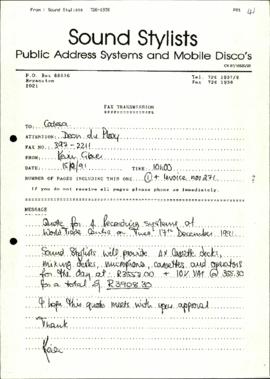 From : Sound Stylists 726-1936 P01
Sound Stylists
Public Address Systems and Mobile Disco's
P.O. Box 68836
Bryanston
2021
Tel. 726 1937/8
Fax 726 1936
FAX TRANSMISSION
TO: Codesa
ATTENTION:
FAX NO.: 397-2211
FROM:
DATE: TIME: 10h00
NUMBER OF PAGES INCLUDING THIS ONE: 1 + Invoice no 271.
If you do not receive all pages please phone us immediately.
MESSAGE
Quote for A Recording system at
World Trade Centre on Tues. 17th December 1991.
Sound Stylists will provide 4x Cassette decks,
mixing desks, microphones, cassettes, and operators
for the day at R3553.00 + 10% VAT @ 355.30
for a total of R3908.30
I hope this quote meets with your approval
Thank